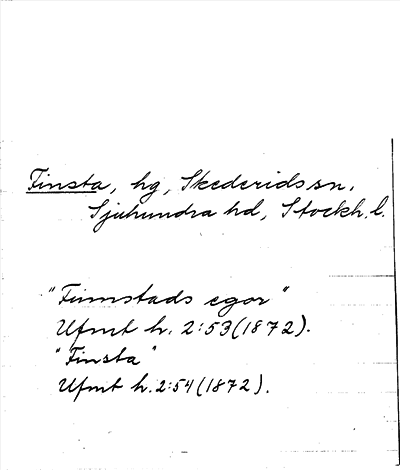 Finsta, hg, Skederids sn.
Sjuhundra hd, Stockh. l.
"Finnstads egor"
Ufmt h. 2:53 (1872).
"Finsta"
Ufmt h. 2:54 (1872).